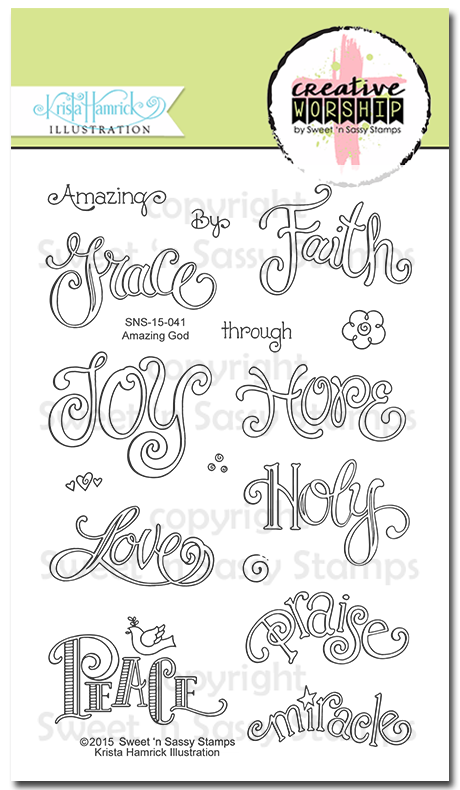 Krista Hamrick
ILLUSTRATION
creative
WORSHIP
by Sweet 'n Sassy Stamps
Amazing
By
Faith
Grace
SNS-15-041
Amazing God
through
JOY
HOPE
Holy
Love
Praise
PEACE
miracle
©2015 Sweet 'n Sassy Stamps
Krista Hamrick Illustration
copyright
Sweet 'n Sassy Stamps
copyright
Sweet 'n Sassy Stamps
copyright
Sweet 'n Sassy Stamps
copyright
Sweet 'n Sassy Stamps